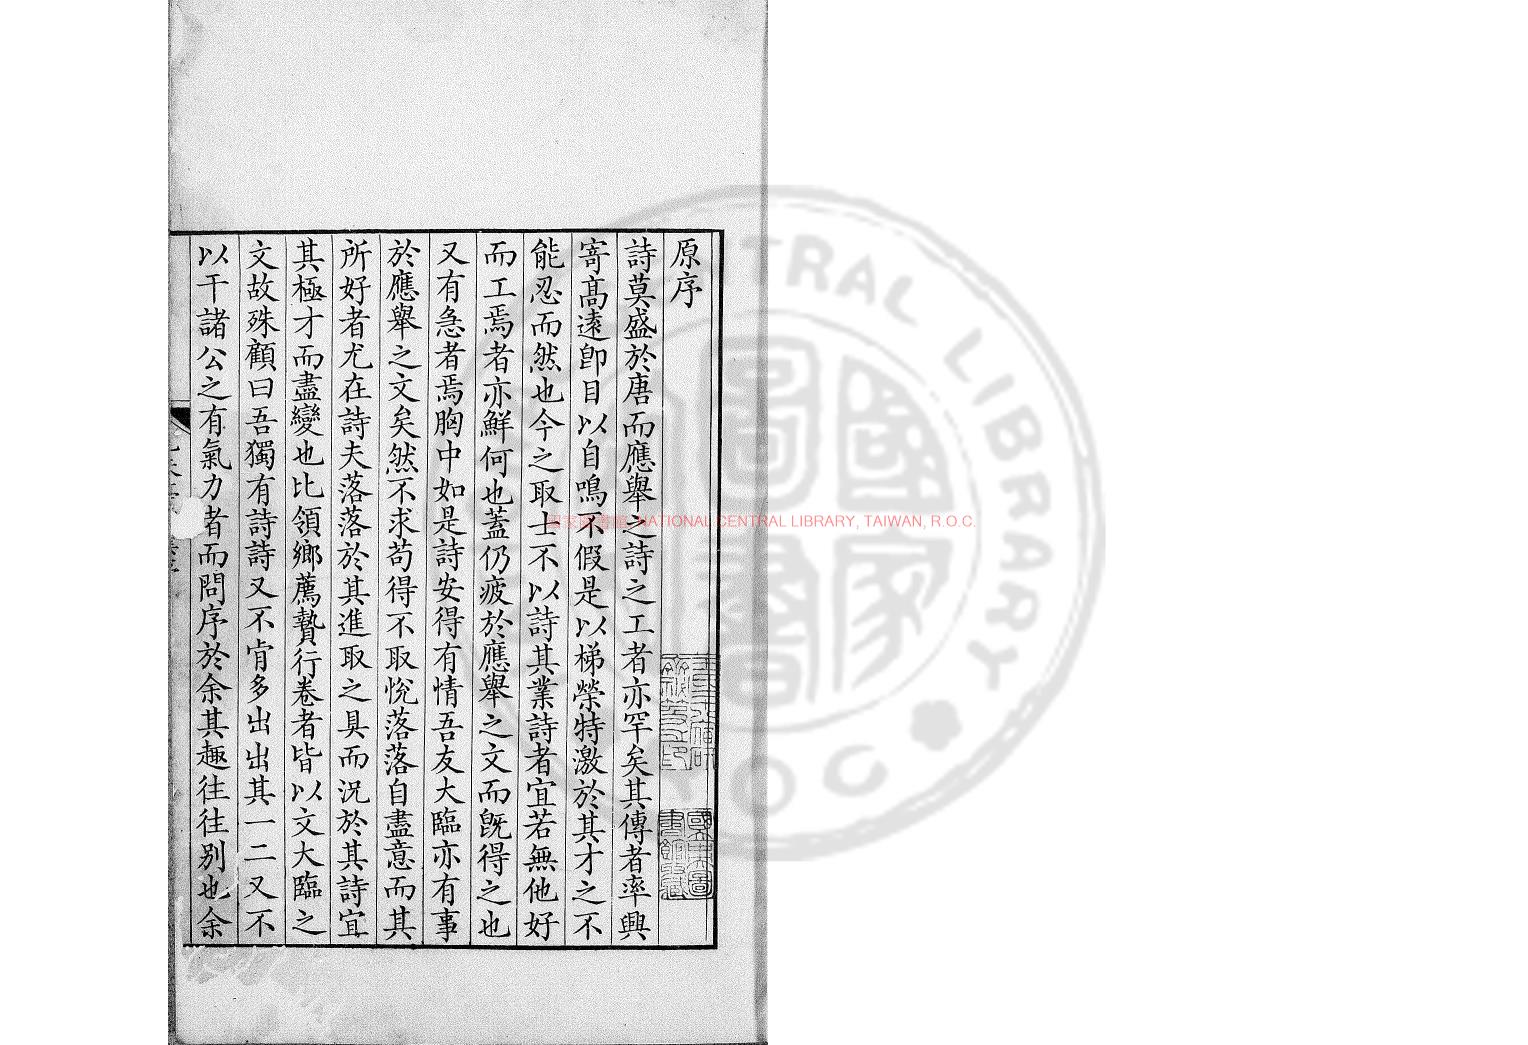 原序
詩莫盛於唐而應舉之詩之工者亦罕矣其傳者率興
寄高遠卽目以自鳴不假是以梯榮特激於其才之不
能忍而然也今之取士不以詩其業詩者宜若無他好
而工焉者亦鮮何也蓋仍疲於應舉之文而旣得之也
又有急者焉胸中如是詩安得有情吾友大臨亦有事
於應舉之文矣然不求苟得不取悅落落自盡意而其
所好者尤在詩夫落落於其進取之具而况於其詩宜
其極才而盡變也比領鄉薦贄行卷者皆以文大臨之
文故殊顧曰吾獨有詩詩又不肯多出出其一二又不
以干諸公之有氣力者而問序於余其趣往往别也余
國立中央圖
書館藏
國家圖書館 NATIONAL CENTRAL LIBRARY, TAIWAN, R.O.C.
CENTRAL LIBRARY
ROC
國家圖書